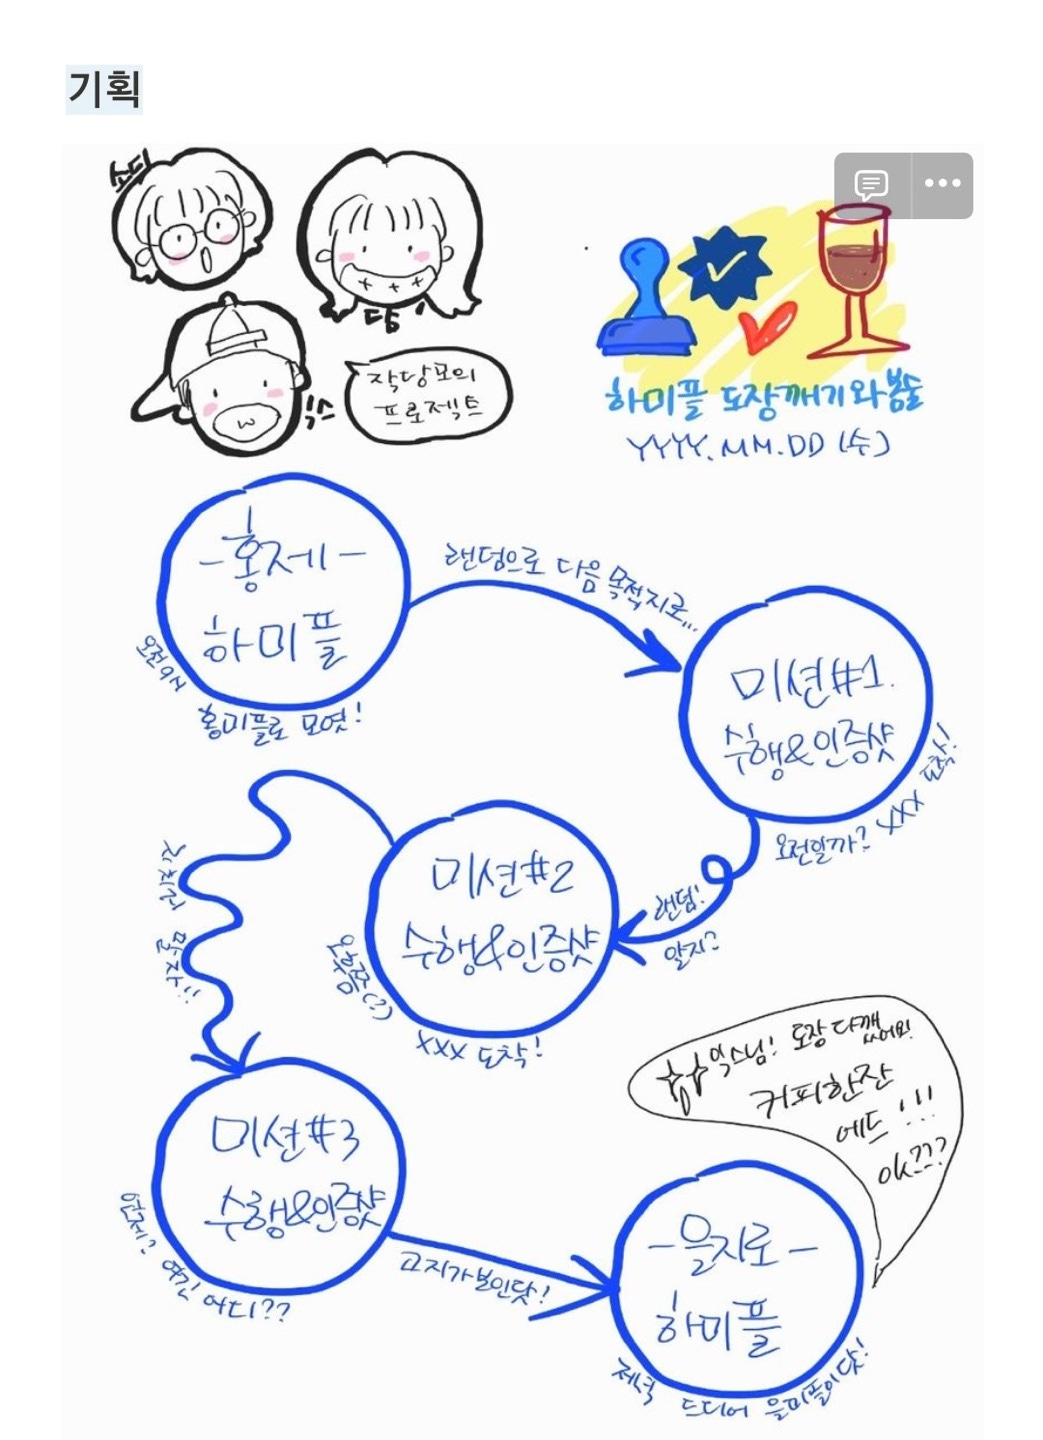 기획
소디
담
익스
작당모의
프로젝트
하미플 도장깨기와 봄술
YYYY.MM.DD (수)
-홍제-
하미플
오전 9시
홍미플로 모엿!
랜덤으로 다음 목적지로...
미션#1.
수행&인증샷
XXX 도착!
오전일까?
랜덤!
알지?
미션#2
수행&인증샷
오후쯤(?)
XXX 도착!
지치지 말자!!!
미션#3
수행&인증샷
언제? 여긴 어디??
고지가 보인닷!
익스님! 도장 다깼어요!
커피한잔
에드!!!
OK???
-을지로-
하미플
저녁 드디어 을미플이닷!